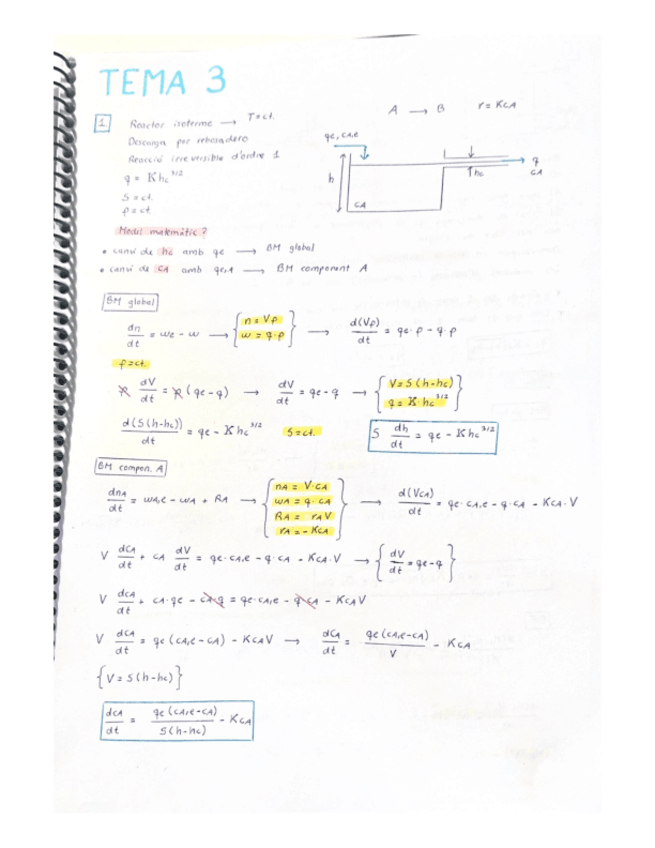 TEMA 3
1 Reactor isoterme → T=ct.
A → B r = KCA
Descarga per rebosadero
Reacció irreversible d'ordre 1
q = K hc^3/2
S = ct.
ρ = ct.
qe, CA,e
h
CA
hc
q
CA
Model matemàtic?
• canvi de hc amb qe → BM global
• canvi de CA amb qe,A → BM component A
BM global
dn/dt = we - w → { n = Vρ w = q·ρ } → d(Vρ)/dt = qe·ρ - q·ρ
ρ = ct.
ρ dV/dt = ρ (qe - q) → dV/dt = qe - q → { V = S(h-hc) q = K hc^3/2 }
d(S(h-hc))/dt = qe - K hc^3/2 S = ct. S dh/dt = qe - K hc^3/2
BM compon. A
dnA/dt = wA,e - wA + RA → { nA = V·CA wA = q·CA RA = rA V rA = -KCA } → d(VCA)/dt = qe·CA,e - q·CA - KCA·V
V dCA/dt + CA dV/dt = qe·CA,e - q·CA - KCA·V → { dV/dt = qe - q }
V dCA/dt + CA·qe - CA·q = qe·CA,e - q·CA - KCAV
V dCA/dt = qe (CA,e - CA) - KCAV → dCA/dt = qe (CA,e - CA)/V - KCA
{ V = S(h-hc) }
dCA/dt = qe (CA,e - CA)/S(h-hc) - KCA